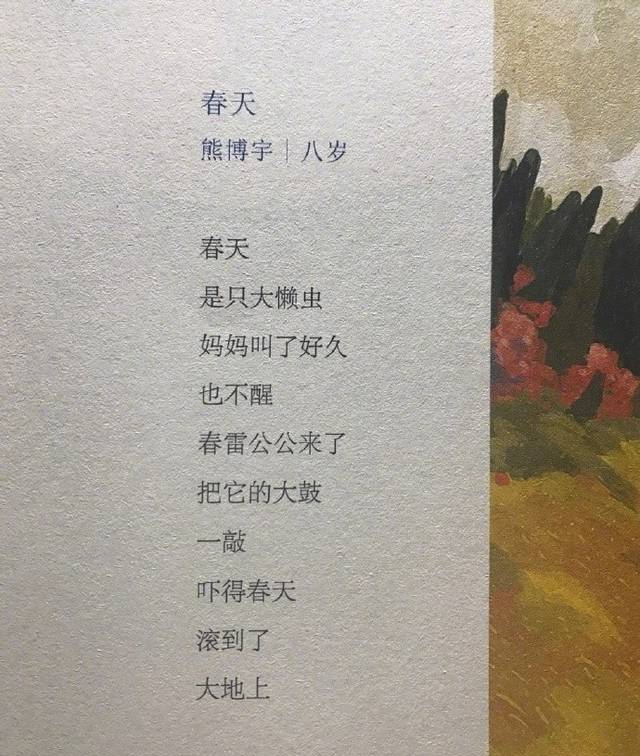 春天
熊博宇｜八岁
春天
是只大懒虫
妈妈叫了好久
也不醒
春雷公公来了
把它的大鼓
一敲
吓得春天
滚到了
大地上